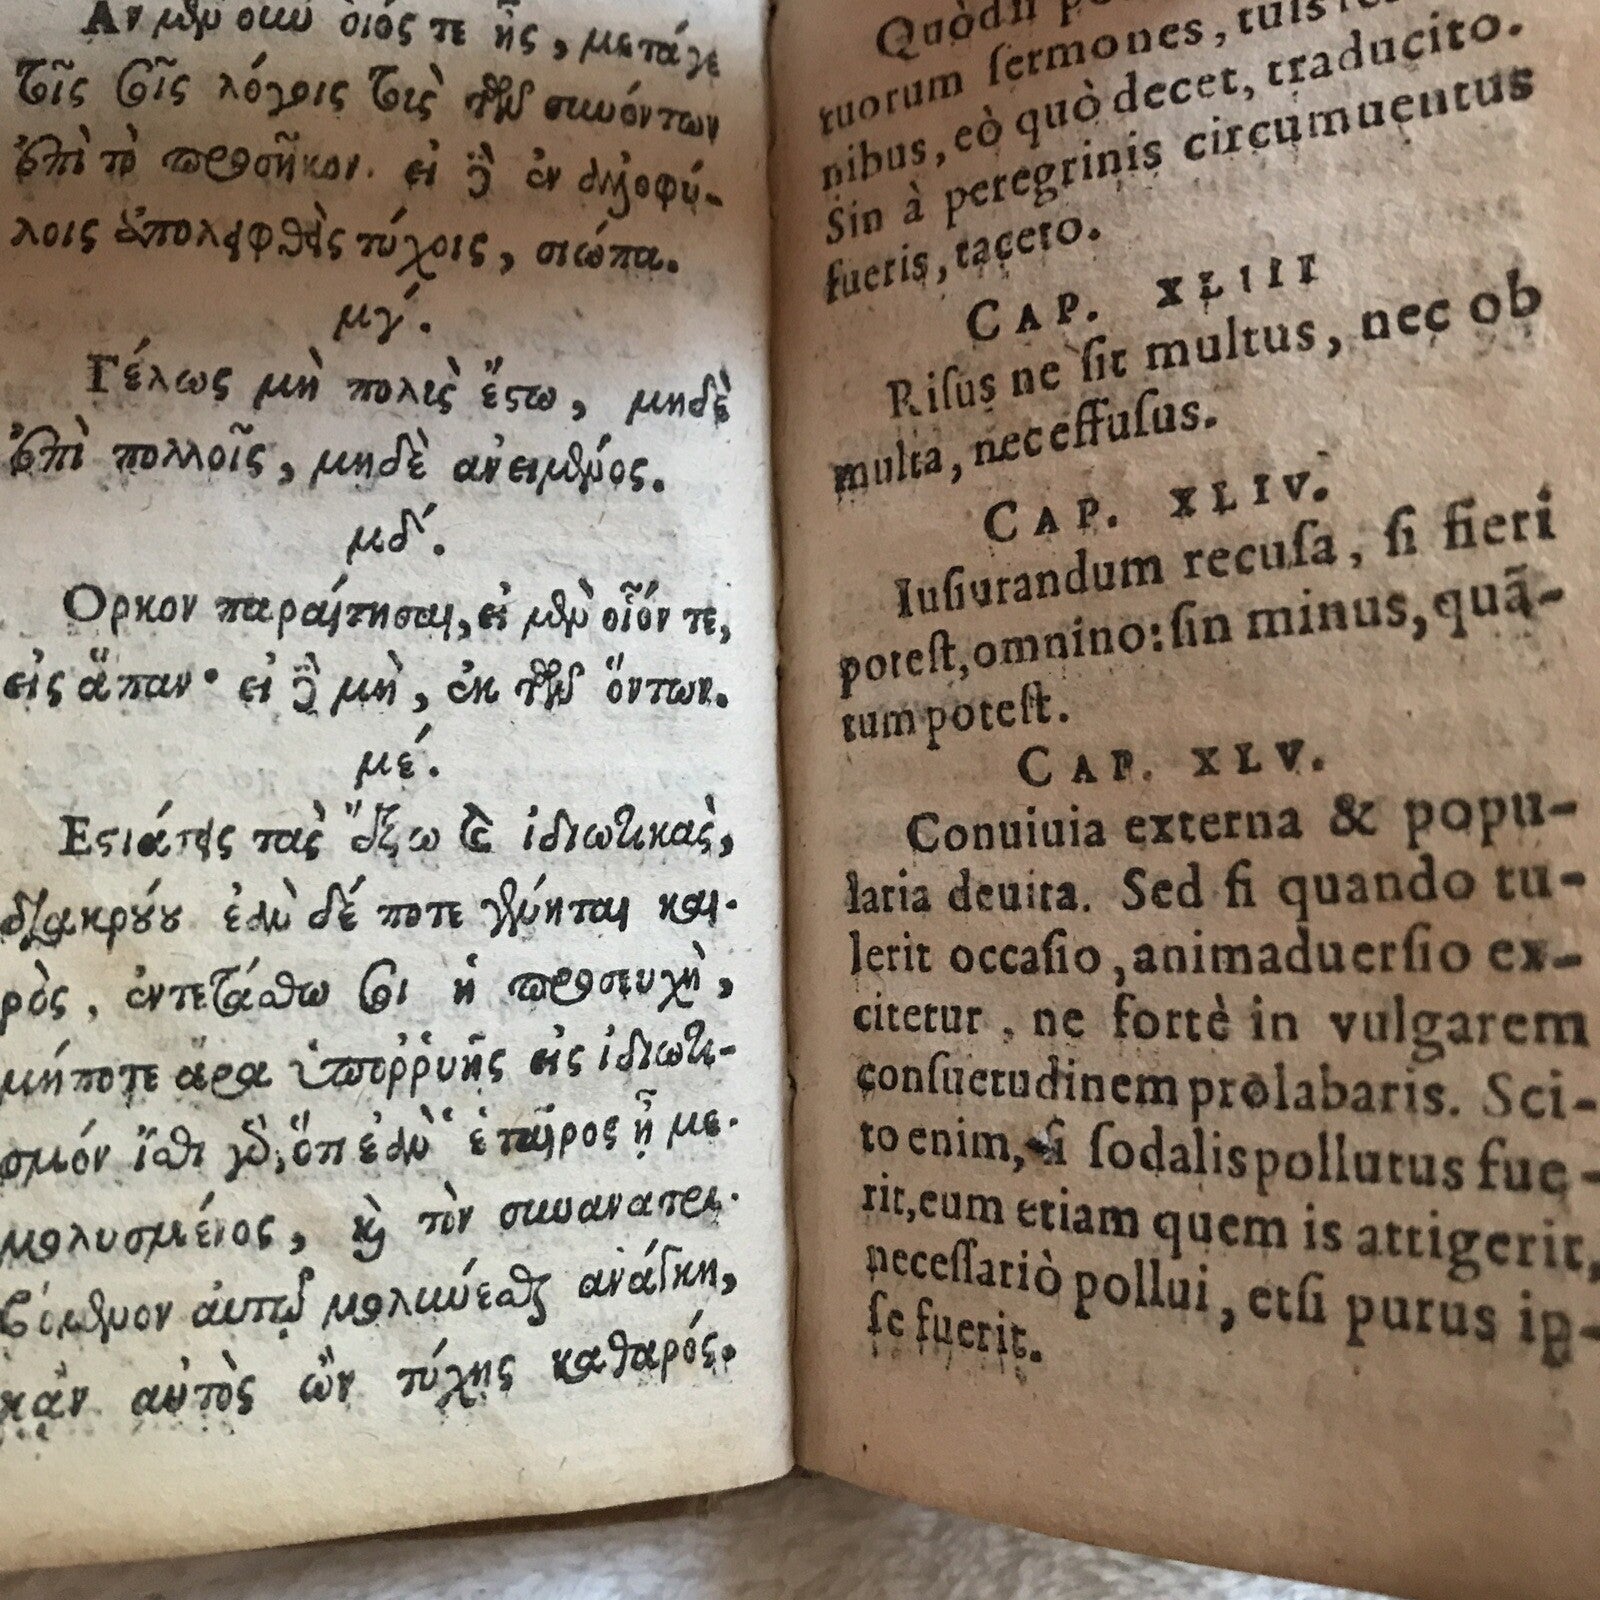 Αν μὲν οὖν οἷός τε ᾖς, μετάγε
τοῖς σοῖς λόγοις τοὺς τῶν συνόντων
ἐπὶ τὸ προσῆκον. εἰ δὲ ἐν ἀλλοφύ-
λοις ἀποληφθεὶς τύχοις, σιώπα.
μγʹ.
Γέλως μὴ πολὺς ἔστω, μηδὲ
ἐπὶ πολλοῖς, μηδὲ ἀνειμένος.
μδʹ.
Ορκον παραίτησαι, εἰ μὲν οἷόν τε,
εἰς ἅπαν· εἰ δὲ μὴ, ἐκ τῶν ὄντων.
μέ.
Εστιάσεις τὰς ἔξω καὶ ἰδιωτικὰς,
διακρούου ἐὰν δέ ποτε γένηται και-
ρὸς, ἐντετάσθω σοι ἡ προσευχὴ,
μήποτε ἄρα ὑποῤῥυῇς εἰς ἰδιωτι-
σμόν ἴσθι γὰρ, ὅτι ἐὰν ὁ ἑταῖρος ᾖ με-
μολυσμένος, καὶ τὸν συνανατρι-
βόμενον αὐτῷ μολύνεσθαι ἀνάγκη,
κἂν αὐτὸς ὢν τύχης καθαρός.
Quòd si
tuorum sermones, tuis
nibus, eò quò decet, traducito.
Sin à peregrinis circumuentus
fueris, taceto.
CAP. XLIII
Risus ne sit multus, nec ob
multa, nec effusus.
CAP. XLIV.
Iusiurandum recusa, si fieri
potest, omnino: sin minus, quã-
tum potest.
CAP. XLV.
Conuiuia externa & popu-
laria deuita. Sed si quando tu-
lerit occasio, animaduersio ex-
citetur, ne fortè in vulgarem
consuetudinem prolabaris. Sci-
to enim, si sodalis pollutus fue-
rit, eum etiam quem is attigerit,
necessariò pollui, etsi purus ip-
se fuerit.